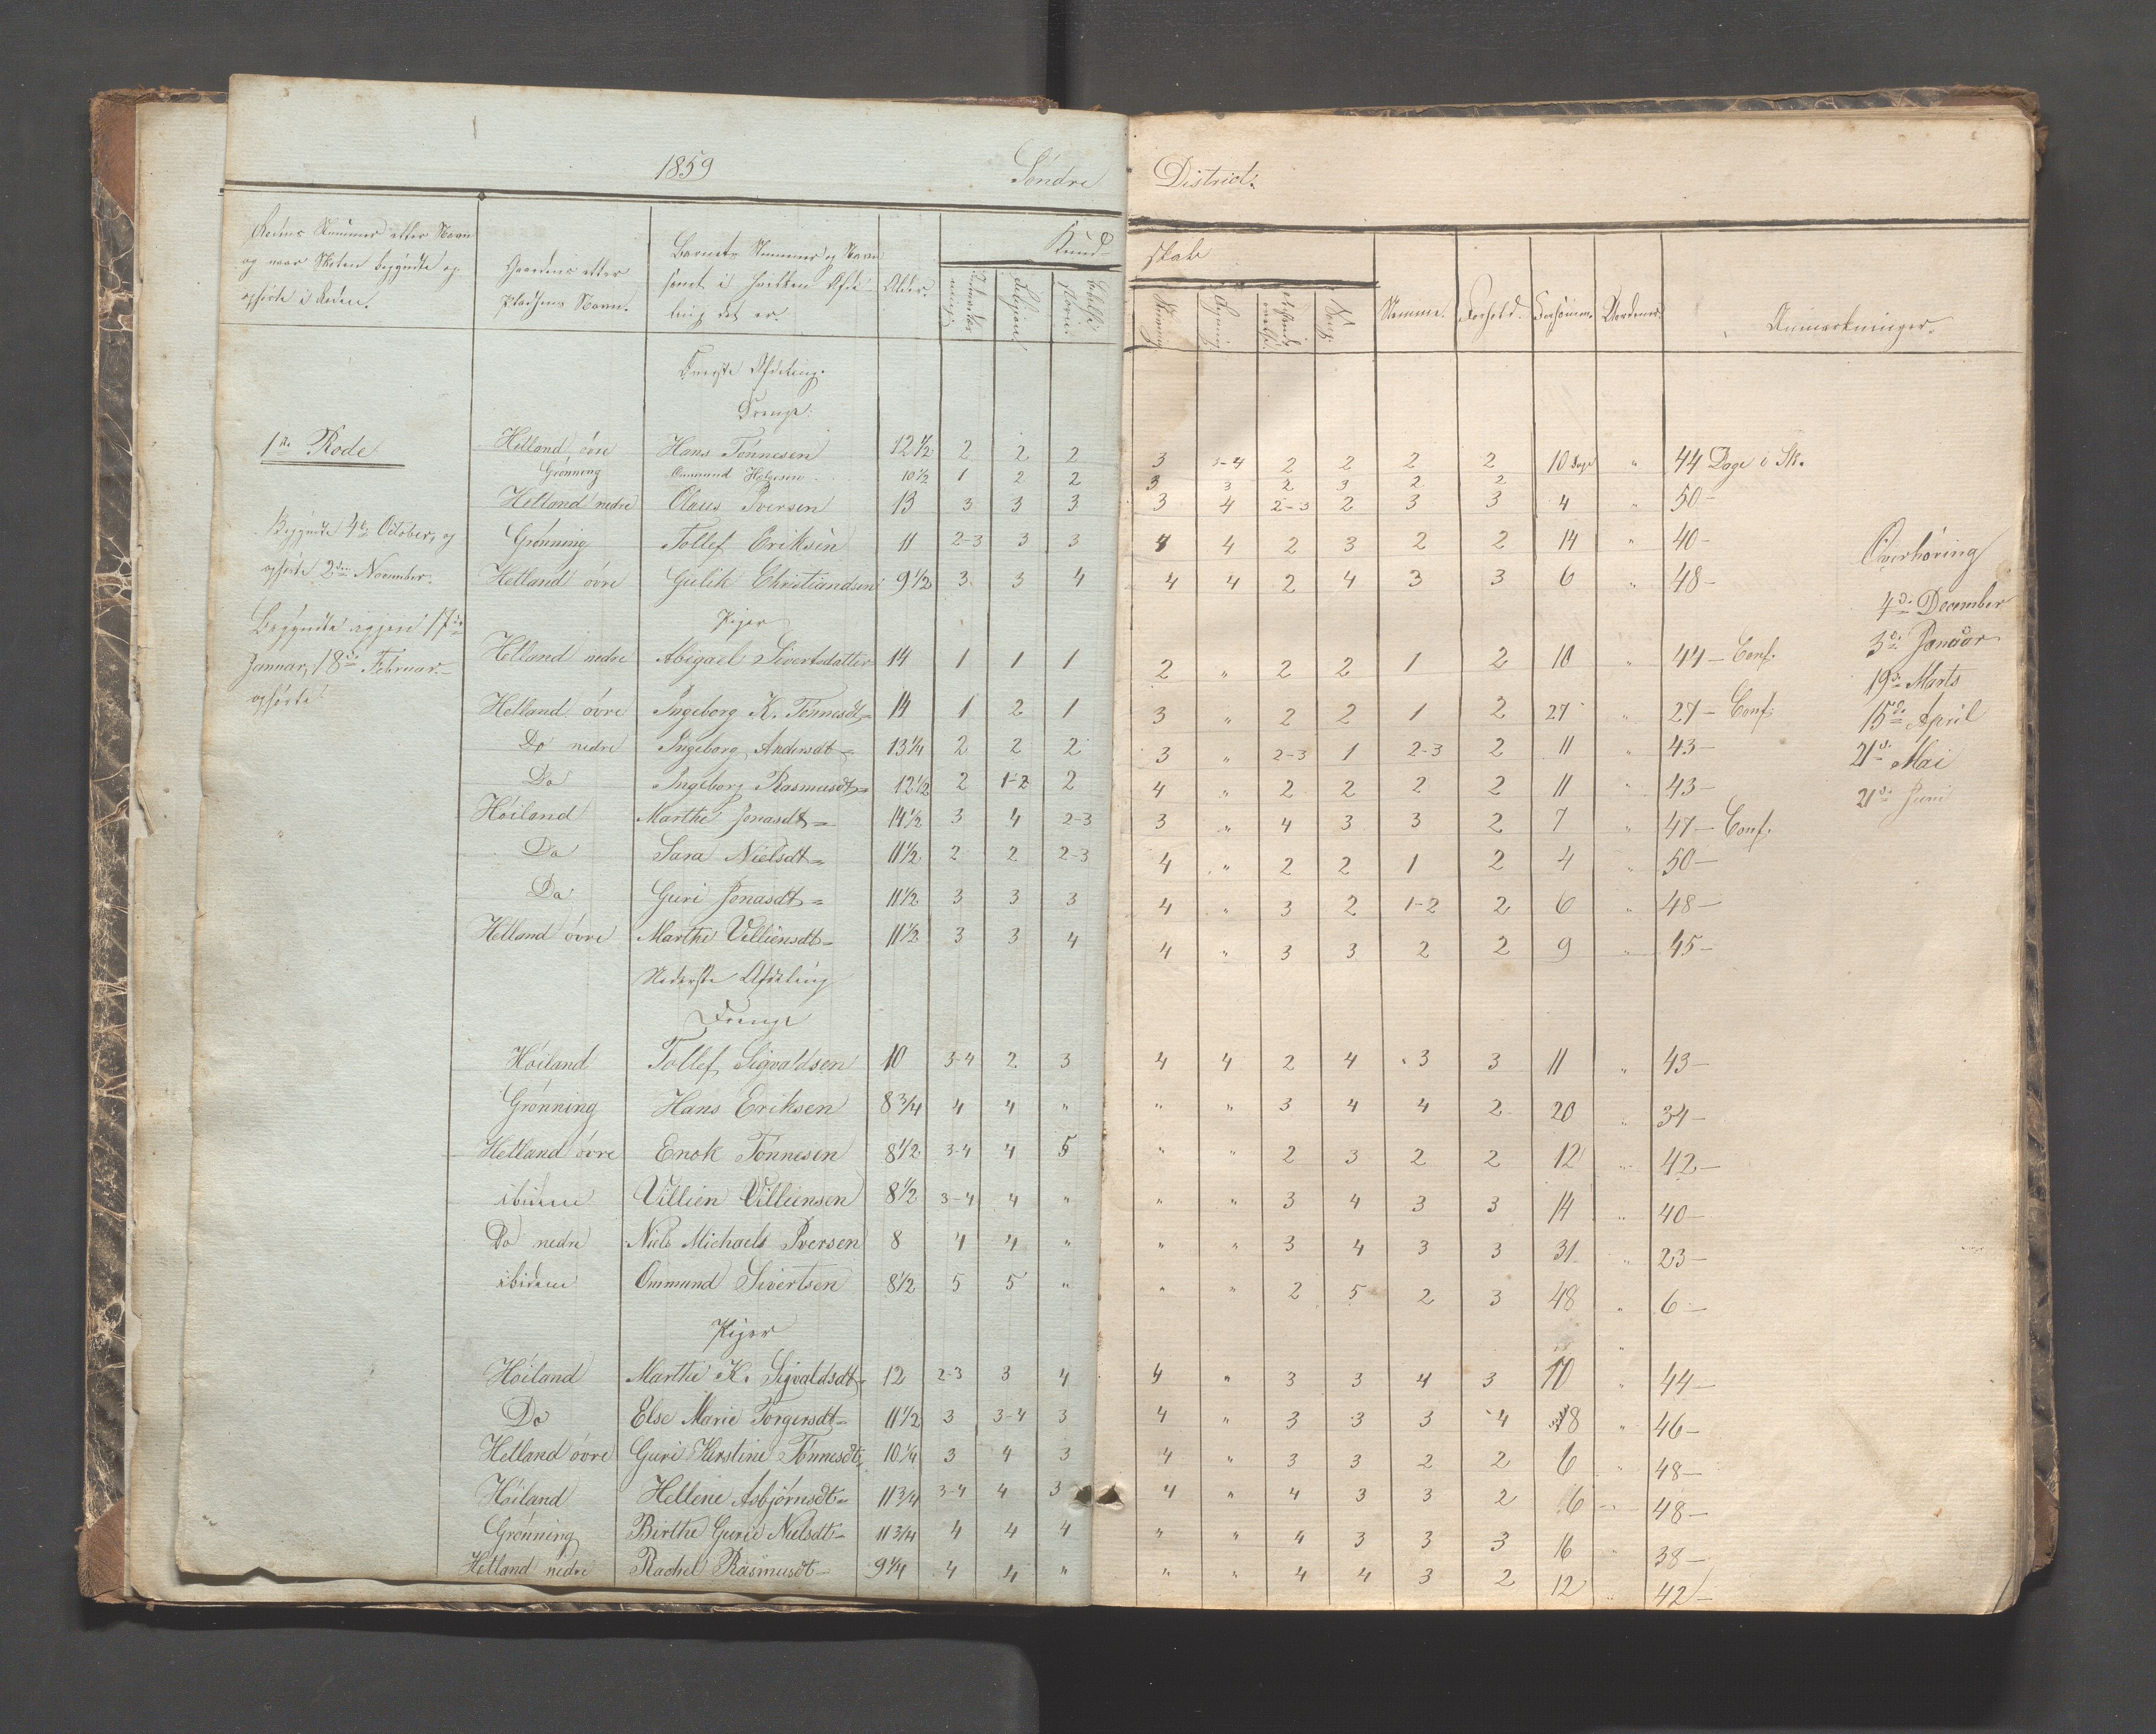 1859 Söndre District.
Rodens Nummer eller Navn og naar Skolen begyndte og ophørte i Roden. | Gaardens eller Pladsens Navn. | Barnets Nummer og Navn samt i hvilken Afdeling det er. | Alder. | Kundskab | Stemme. | Forhold. | Forsömm. | Anmærkninger.
Religion | Skrivning | Regning | Sang
Øverste Afdeling.
Drenge:
1ste Rode | Helland övre | Hans Tönnesen | 12 1/2 | 2 | 2 | 2 | 3 | 3-4 | 2 | 2 | 2 | 2 | 10 Dage | " | 44 Dage i Sk.
Grönning | Ommund Helgesen | 10 1/2 | 1 | 2 | 2 | 3 | 3 | 2 | 3 | 2 | 2
Helland nedre | Olaus Iversen | 13 | 3 | 3 | 3 | 3 | 4 | 2-3 | 2 | 3 | 3 | 4 | " | 50-
Begyndte 4de October, og | Grönning | Tollef Eriksen | 11 | 2-3 | 3 | 3 | 4 | 4 | 2 | 3 | 2 | 2 | 14 | " | 40- | Overhöring
ophörte 2den November. | Helland övre | Gulik Christiandsen | 9 1/2 | 3 | 3 | 4 | 4 | 4 | 2 | 4 | 3 | 3 | 6 | " | 48-
4de December
Begyndte igjen 17de | Piger
Januar, 18de Februar | Helland nedre | Abigael Sivertsdatter | 14 | 1 | 1 | 1 | 2 | " | 2 | 2 | 1 | 2 | 10 | " | 44- Conf. | 3de Januar
19de Marts
ophörte | Helland övre | Ingeborg K. Tönnesdt= | 14 | 1 | 2 | 1 | 3 | " | 2 | 2 | 1 | 2 | 27 | " | 27- Conf: | 15de April
Do nedre | Ingeborg Andersdt= | 13 1/4 | 2 | 2 | 2 | 3 | " | 2-3 | 1 | 2-3 | 2 | 11 | " | 43- | 21de Mai
Do | Ingeborg Rasmusdt= | 12 1/2 | 2 | 1-2 | 2 | 4 | " | 2 | 2 | 2 | 2 | 11 | " | 43- | 21de Juni
Höiland | Marthe Jonasdt= | 14 1/2 | 3 | 4 | 2-3 | 3 | " | 4 | 3 | 3 | 2 | 7 | " | 47- Conf.
Do | Sara Nielsdt= | 11 1/2 | 2 | 2 | 2-3 | 4 | " | 2 | 2 | 1 | 2 | 4 | " | 50-
Do | Guri Jonasdt= | 11 1/2 | 3 | 3 | 3 | 4 | " | 3 | 2 | 1-2 | 2 | 6 | " | 48-
Helland övre | Marthe Villiensdt= | 11 1/2 | 3 | 3 | 4 | 4 | " | 3 | 3 | 2 | 2 | 9 | " | 45-
Nederste Afdeling
Drenge
Höiland | Tollef Sigvaldsen | 10 | 3-4 | 2 | 3 | 4 | 4 | 2 | 4 | 3 | 3 | 11 | " | 43-
Grönning | Hans Eriksen | 8 3/4 | 4 | 4 | " | " | " | 3 | 4 | 4 | 2 | 20 | " | 34-
Helland övre | Enok Tönnesen | 8 1/2 | 3-4 | 4 | 5 | " | " | 2 | 3 | 2 | 2 | 12 | " | 42-
ibidem | Villien Villiensen | 8 1/2 | 3-4 | 4 | " | " | " | 3 | 4 | 3 | 3 | 14 | " | 40-
Do nedre | Niels Michaels Iversen | 8 | 4 | 4 | " | " | " | 3 | 4 | 3 | 3 | 31 | " | 23-
ibidem | Ommund Sivertsen | 8 1/2 | 5 | 5 | " | " | " | 2 | 5 | 2 | 3 | 48 | " | 6-
Piger
Höiland | Marthe K. Sigvaldsdt= | 12 | 2-3 | 3 | 4 | 4 | " | 3 | 3 | 4 | 3 | 10 | " | 44-
Do | Else Marie Torgersdt= | 11 1/2 | 3 | 3-4 | 3 | 4 | " | 3 | 3 | 3 | 4 | 8 | " | 46-
Helland övre | Guri Kirstine Tönnesdt= | 10 1/4 | 3 | 4 | 3 | 4 | " | 3 | 3 | 2 | 2 | 6 | " | 48-
Höiland | Hellene Asbjörnsdt= | 11 3/4 | 3-4 | 4 | 3 | 4 | " | 4 | 3 | 3 | 2 | 6 | " | 48-
Grönning | Birthe Gurie Nielsdt= | 11 3/4 | 4 | 4 | 4 | " | " | 4 | 3 | 3 | 3 | 16 | " | 38-
Helland nedre | Rachel Rasmusdt= | 9 1/4 | 4 | 4 | " | " | " | 4 | 4 | 3 | 2 | 12 | " | 42-